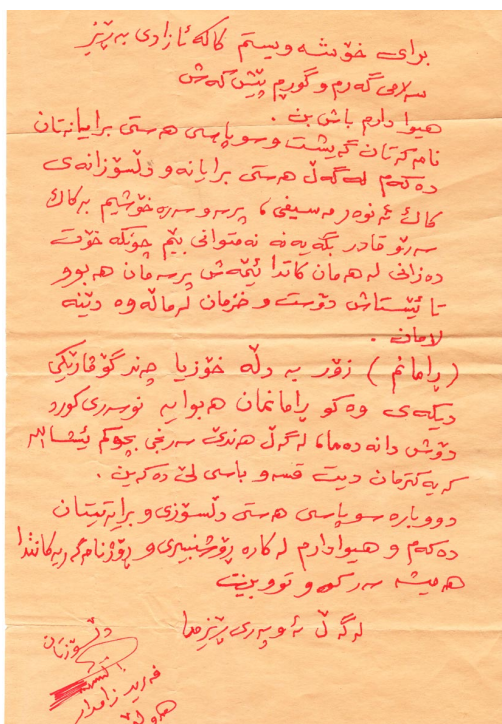 برای خۆشه ویستم کاکه ئازادی به ڕێز
سلامی گه رم و گوڕم پێش که ش
هیوا دارم باش بن .
نامه کتان گه یشت و سوپاسی هه ستی برایانه تان
ده که م له گه ڵ هه ستی برایانه و دڵسۆزانه ی
کاک ئه نوه ر مه سیفی ، پرسه و سه ره خۆشیم به کاک
سه رۆ قادر بگه یه نه نه متوانی بێم چونکه خۆت
ده زانی له هه مان کاتدا ئێمه ش پرسه مان هه بوو
تا ئێستاش دۆست و خزمان له ماڵه وه دێنه
لامان .
( ڕامانم ) زۆر به دڵه خۆزیا چه ند گۆڤارێکی
دیکه ی وه کو ڕامانمان هه بوایه نوسه ری کورد
دۆش دانه ده ما، له گه ڵ هه ندێ سه رنجی بچوکم ئیشا الله
که یه کترمان دیت قسه و باسی لێ ده که ین .
دووباره سوپاسی هه ستی دڵسۆزی و برایه تیتان
ده که م و هیوا دارم له کاره ڕۆشنبیری و ڕۆژنامه گه ریه کانتدا
هه میشه سه رکه و توو بیت
له گه ڵ ئه و په ری ڕێزمدا
دڵسۆزتان
فه رید زامدار
هه ولێر